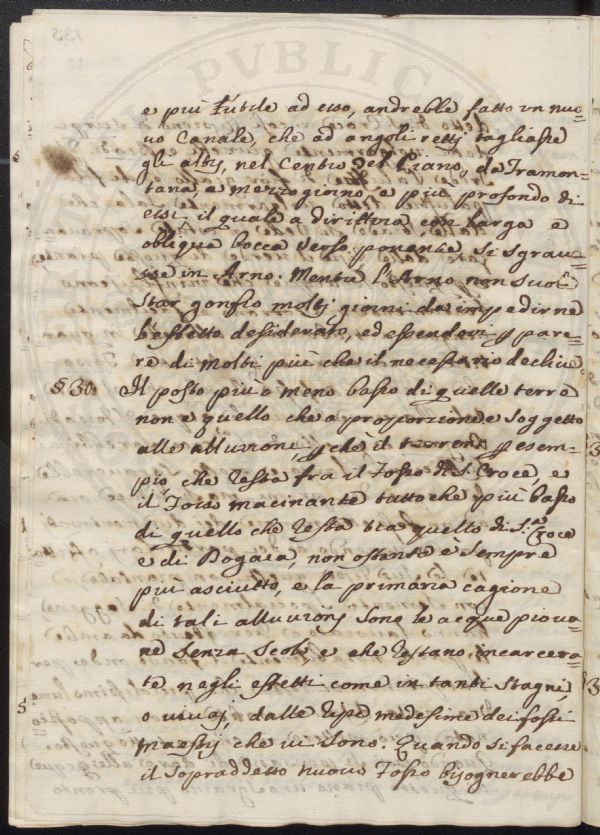 e più l'utile ad esso, andrebbe fatto un nuo=
uo Canale, che ad angoli retti tagliasse
gl'altrj, nel Centro del Piano, da Tramon=
tana a mezzogiorno, e più profondo di
essi, il quale a dirittura con larga e
obliqua bocca verso ponente, si sgrauas=
se in Arno. Mentre l'Arno non suol
star gonfio moltj giorni da impedirne
l'effetto desiderato, ed essendovi p pare=
re di molti più che il necessario decliue
§ 30. Il posto più o meno basso di quelle terre
non è quello che a proporzione è soggetto
alle alluuioni, p chè il terreno p esem=
pio, che resta fra il Fosso di S. Croce, e
il Fosso macinante tutto che più basso
di quello che resta tra quello di S.ta Croce
e di Pogaia, non ostante è sempre
più asciutto, e la primaria cagione
di tali alluuionj sono le acque pioua=
ne senza scolo e che restano incarcera=
te negli effetti come in tanti stagni,
o viuaj, dalle ripe medesime dei fossi
maestrj che ui sono. Quando si facesse
il sopraddetto nuouo fosso bisognerebbe